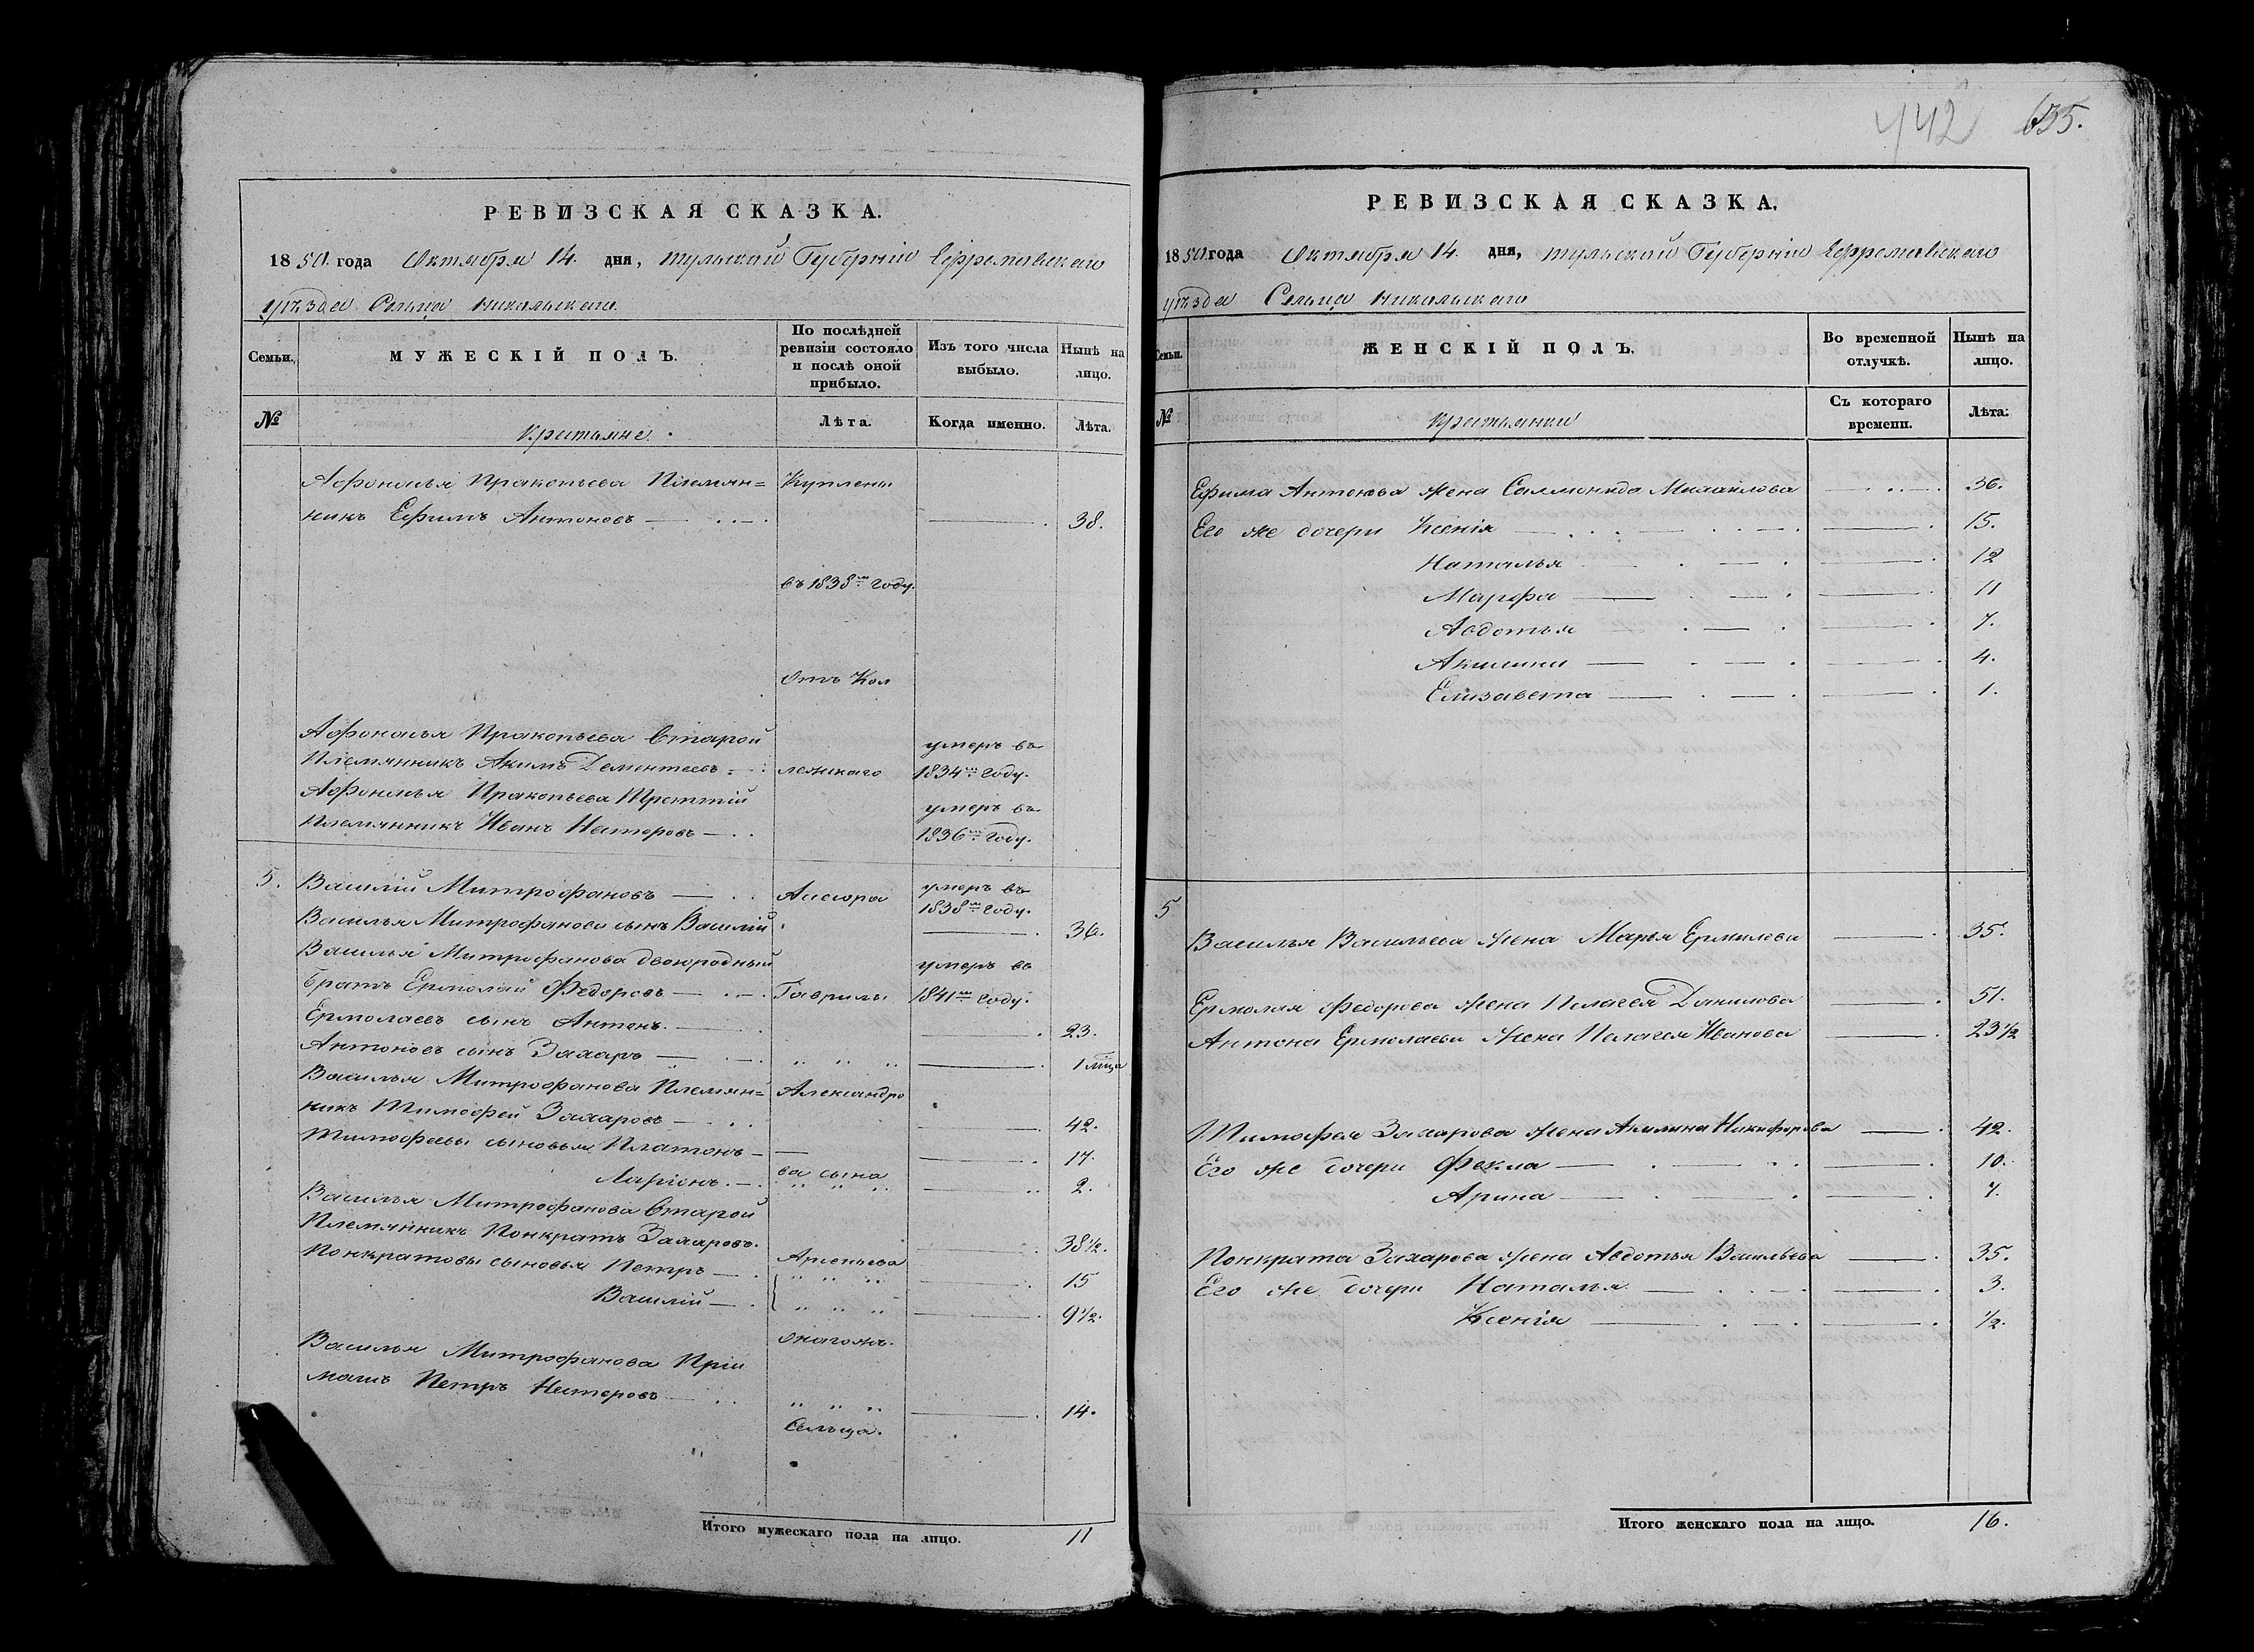 442 635.
РЕВИЗСКАЯ СКАЗКА.
1850. года Октября 14. дня, Тульской Губерніи Ефремовскаго
уѣзда Сельца Никольскаго.
Семьи.
МУЖЕСКІЙ ПОЛЪ.
По послѣдней
ревизіи состояло
и послѣ оной
прибыло.
Изъ того числа
выбыло.
Нынѣ на
лицо.
№
Крестьяне.
Лѣта.
Когда именно.
Лѣта.
Афонасья Пракопьева Племян= Куплены
никъ Ефимъ Антоновъ 38.
въ 1838м году.
Отъ Кол
Афонасья Пракопьева Старой умеръ въ
Племянникъ Акимъ Дементеевъ лежскаго 1834м году.
Афонасья Пракопьева Треттій умеръ въ
Племянникъ Иванъ Нестеровъ 1836м году.
5. Василій Митрофановъ Ассесора умеръ въ
1838м году.
Василья Митрофанова сынъ Василій 36.
Василья Митрофанова двоюродный умеръ въ
братъ Ермолай Федоровъ Гаврилы 1841м году.
Ермолаевъ сынъ Антонъ. 23.
Антоновъ сынъ Захаръ " " " 1 мѣца
Василья Митрофанова Племян= Александро
никъ Тимофей Захаровъ 42.
Тимофеевы сыновья Платонъ 17.
Ларіонъ. ва сына " " " 2.
Василья Митрофанова Старой
Племянникъ Понкратъ Захаровъ. 38½.
Понкратовы сыновья Петръ Арсеньева " " " 15
Василій " " " 9½.
Онагожъ.
Василья Митрофанова Прій
машъ Петръ Нестеровъ " " " 14.
Сельца.
Итого мужескаго пола на лицо. 11
РЕВИЗСКАЯ СКАЗКА.
1850. года Октября 14. дня, Тульской Губерніи Ефремовскаго
уѣзда Сельца Никольскаго
Семьи.
ЖЕНСКІЙ ПОЛЪ.
Во временной
отлучкѣ.
Нынѣ на
лицо.
№
Крестьянки
Съ котораго
времени.
Лѣта:
Ефима Антонова жена Саломонида Михайлова 36.
Его же дочери Ксенія 15.
Наталья 12
Марфа 11
Авдотья 7.
Акилина 4.
Елизавета 1.
5
Василья Васильева жена Марья Ермилова 35.
Ермолая Федорова жена Пелагея Данилова 51.
Антона Ермолаева жена Пелагея Иванова 23½
Тимофея Захарова жена Акилина Никифорова 42.
Его же дочери Фекла 10.
Арина 7.
Понкрата Захарова жена Авдотья Васильева 35.
Его же дочери Наталья 3.
Ксенія ½.
Итого женскаго пола на лицо. 16.